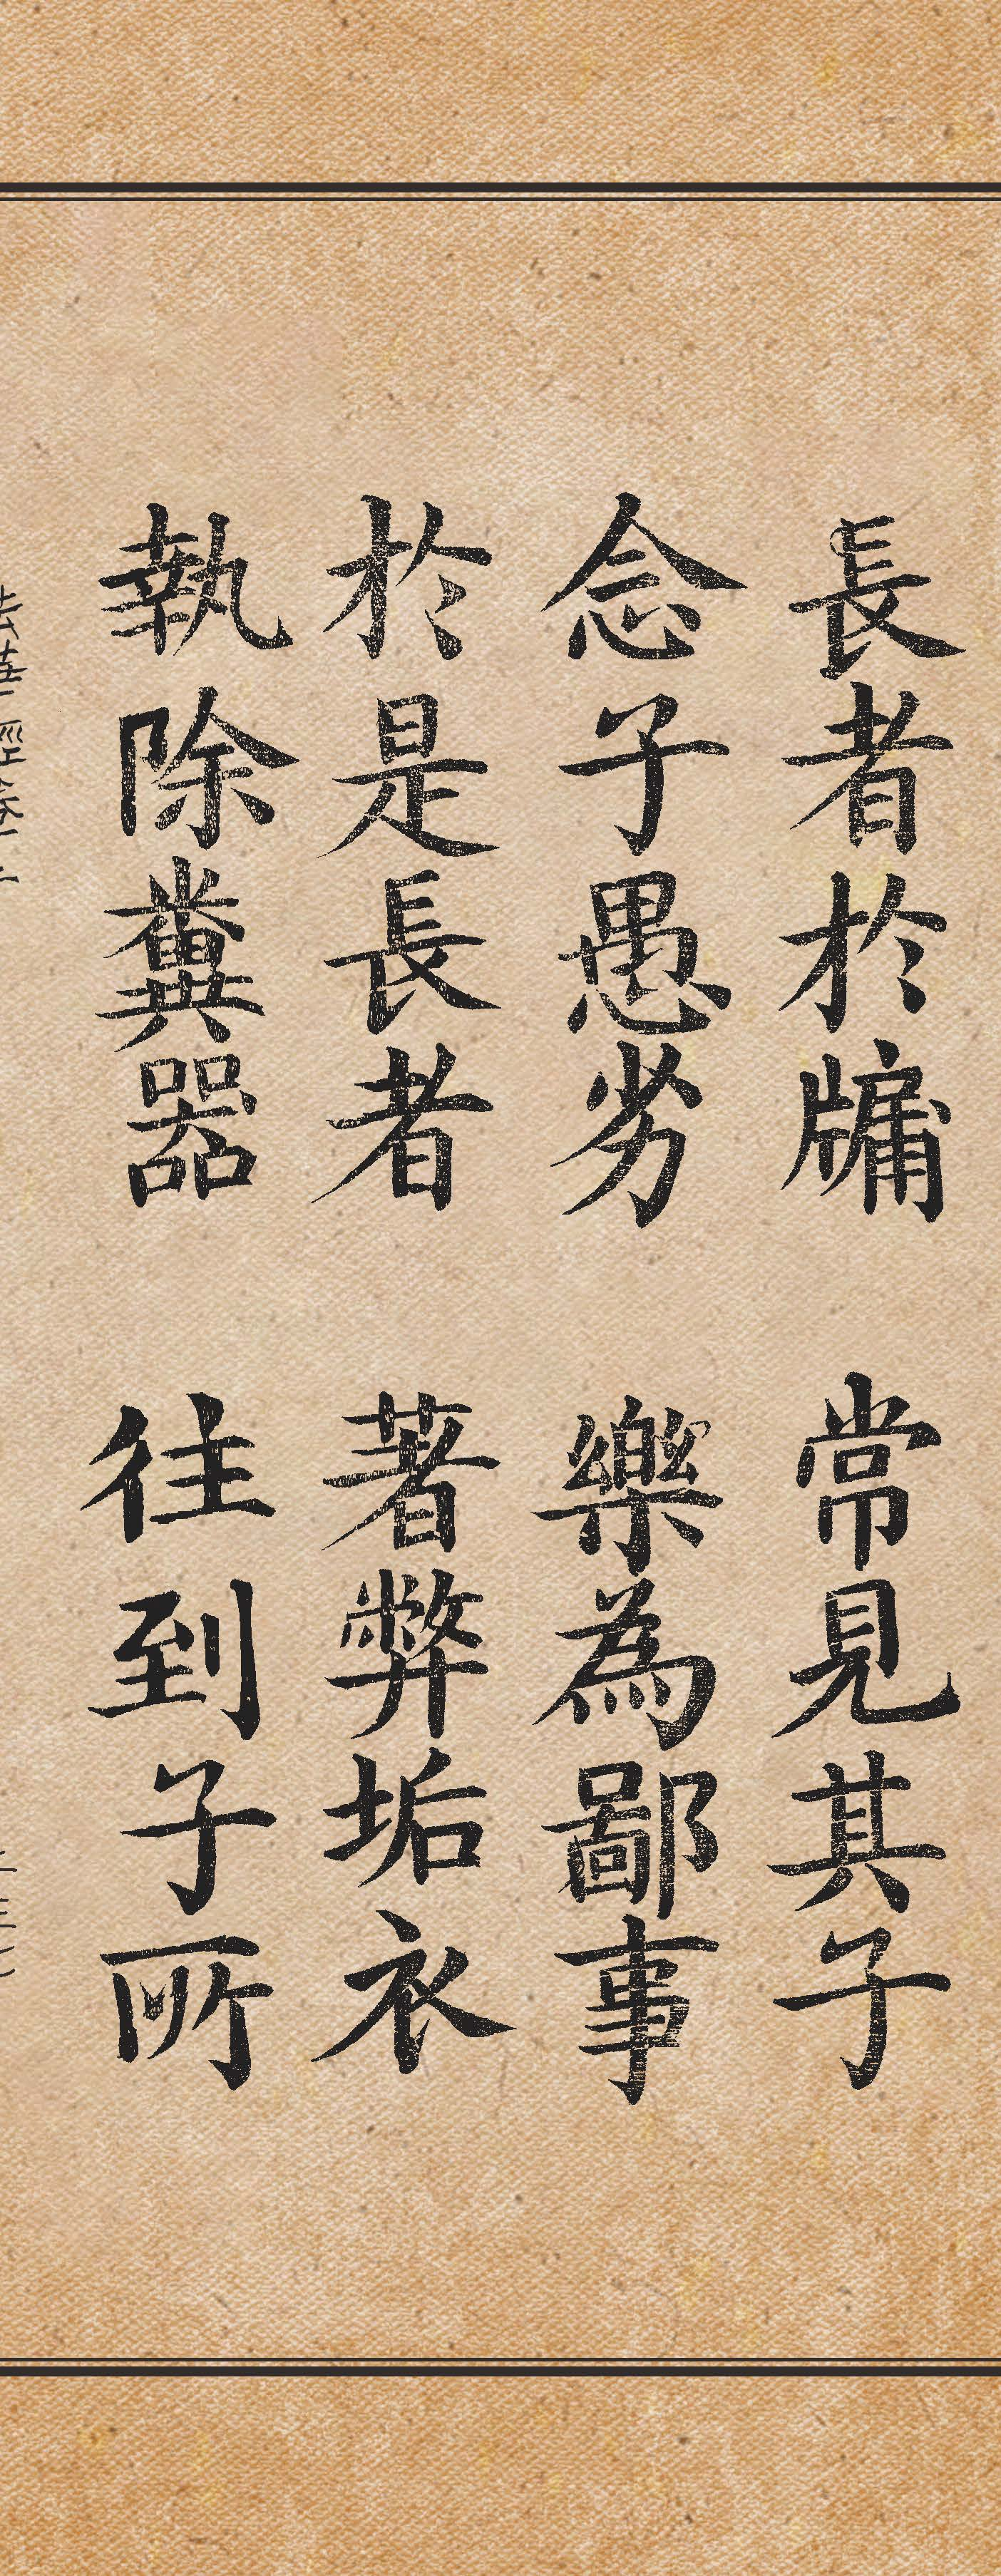 長者於牖 常見其子
念子愚劣 樂為鄙事
於是長者 著弊垢衣
執除糞器 往到子所